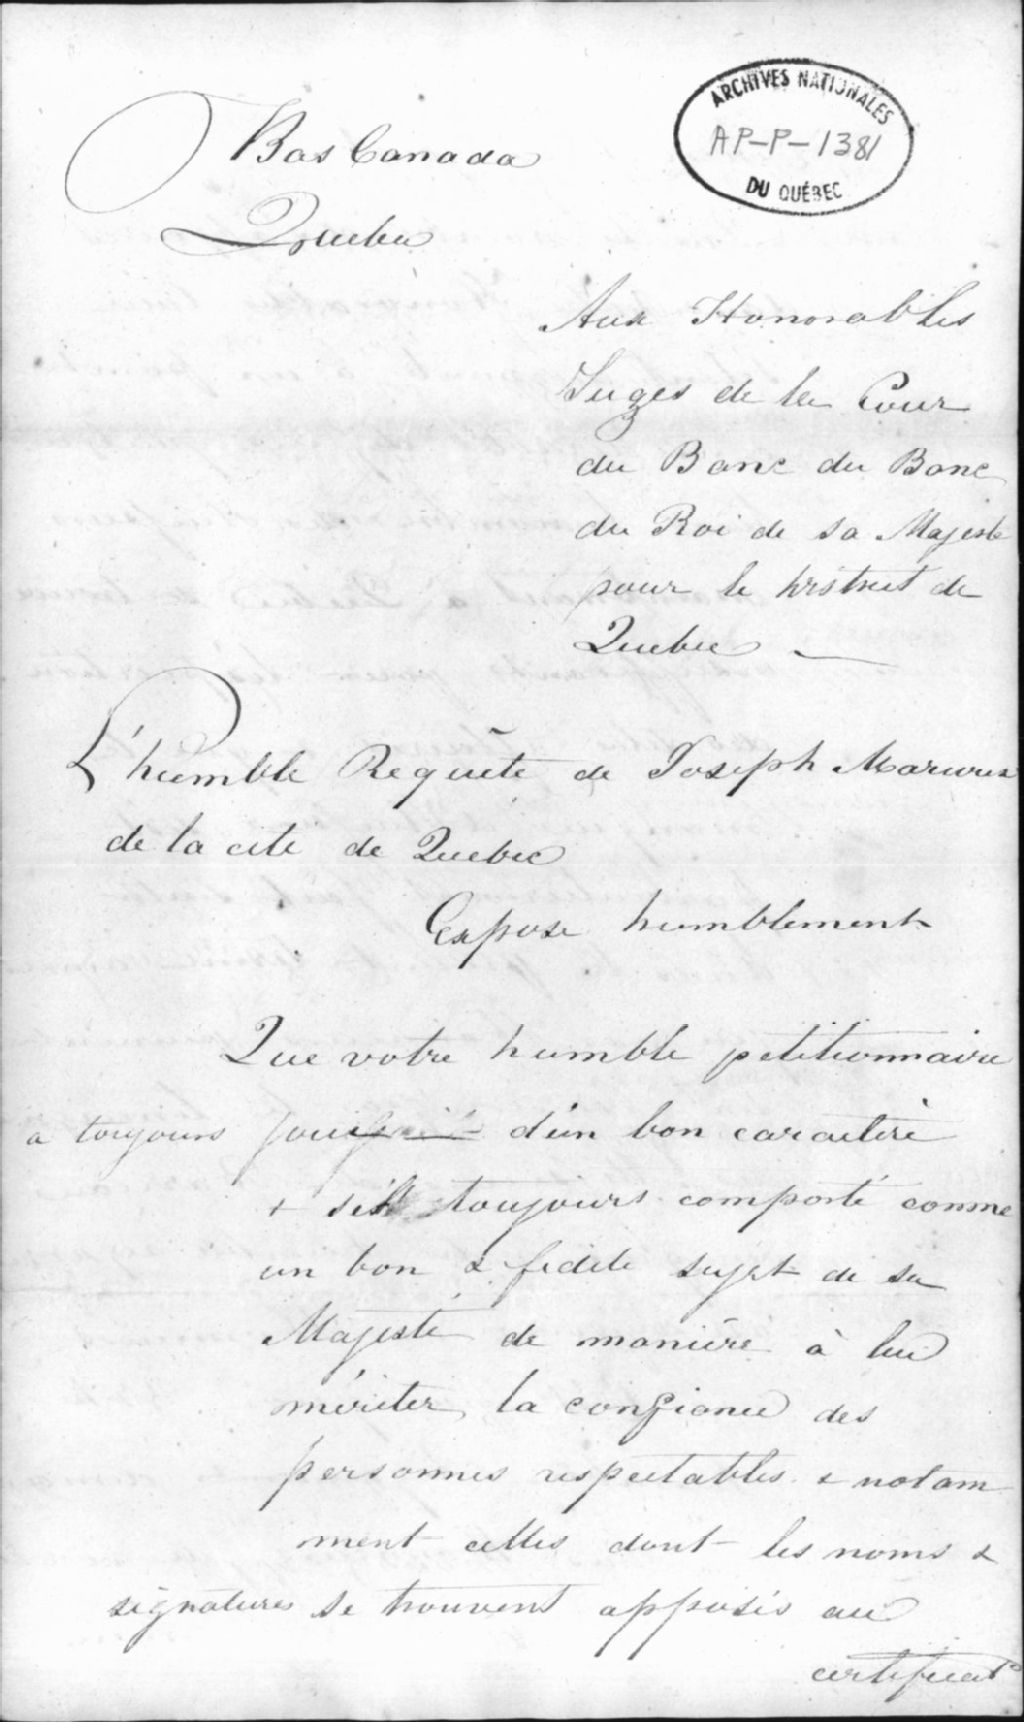 Bas Canada
ARCHIVES NATIONALES
AP-P-1381
DU QUÉBEC
Quebec
Aux Honorables
Juges de la Cour
du Banc du Banc
du Roi de sa Majesté
pour le District de
Quebec
L'humble Requête de Joseph
de la cité de Quebec
Expose humblement
Que votre humble petitionnaire
a toujours joui d'un bon caractère
& s'est toujours comporté comme
un bon & fidele sujet de sa
Majesté de manière à lui
mériter la confiance des
personnes respectables & notam
ment celles dont les noms &
signatures se trouvent apposés au
certificat